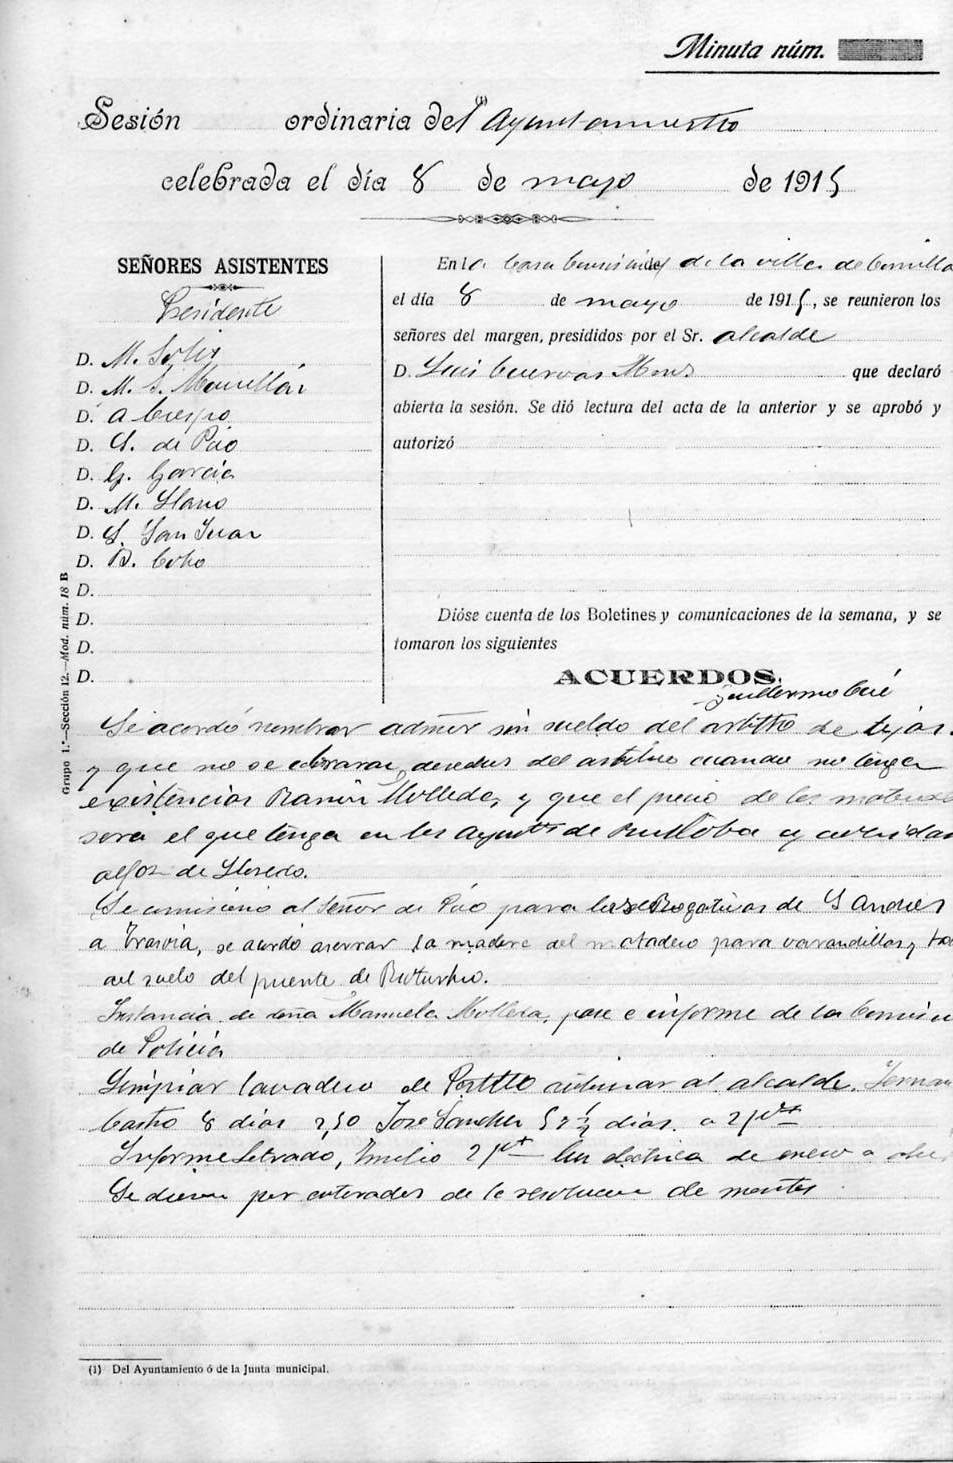 Minuta núm.
Sesión ordinaria del (1) Ayuntamiento
celebrada el día 8 de mayo de 1915
SEÑORES ASISTENTES
Presidente
D. M. Solís
D. M. S.
D. A Crespo
D. S. de Pío
D. G. García
D. M. Llano
D. S. San Juan
D. B. Cobo
D.
D.
D.
D.
Grupo 1.º—Sección 12.—Mod. núm. 18 B
En la Casa Consistorial de la villa de Comillas
el día 8 de mayo de 1915, se reunieron los
señores del margen, presididos por el Sr. alcalde
D. Luis Cuervas Mons que declaró
abierta la sesión. Se dió lectura del acta de la anterior y se aprobó y
autorizó
Dióse cuenta de los Boletines y comunicaciones de la semana, y se
tomaron los siguientes
ACUERDOS.
Guillermo Cué
Se acordó nombrar admor sin sueldo del arbitrio de tejas.
y que no se cobraran derechos del arbitrio cuando no tenga
existencias Ramón Molleda, y que el precio de los
sera el que tenga en los Ayuntos de Ruiloba y
alfoz de Lloredo.
Se comisionó al Señor de Pío para las Rogativas de S Andrés
a Trasvía, se acordó aserrar la madera del matadero para varandillas y
del suelo del puente de Rioturbio.
Instancia de doña Manuela Molleda, pase a informe de la Comisión
de Policía
Limpiar lavadero de al alcalde.
Castro 8 días 2,50 José Sanchez 5 ½ días a 2 pts
Informe Letrado, Emilio 2 pts Luz electrica de enero a
Se dieron por enterados de la resolucion de montes
(1) Del Ayuntamiento ó de la Junta municipal.